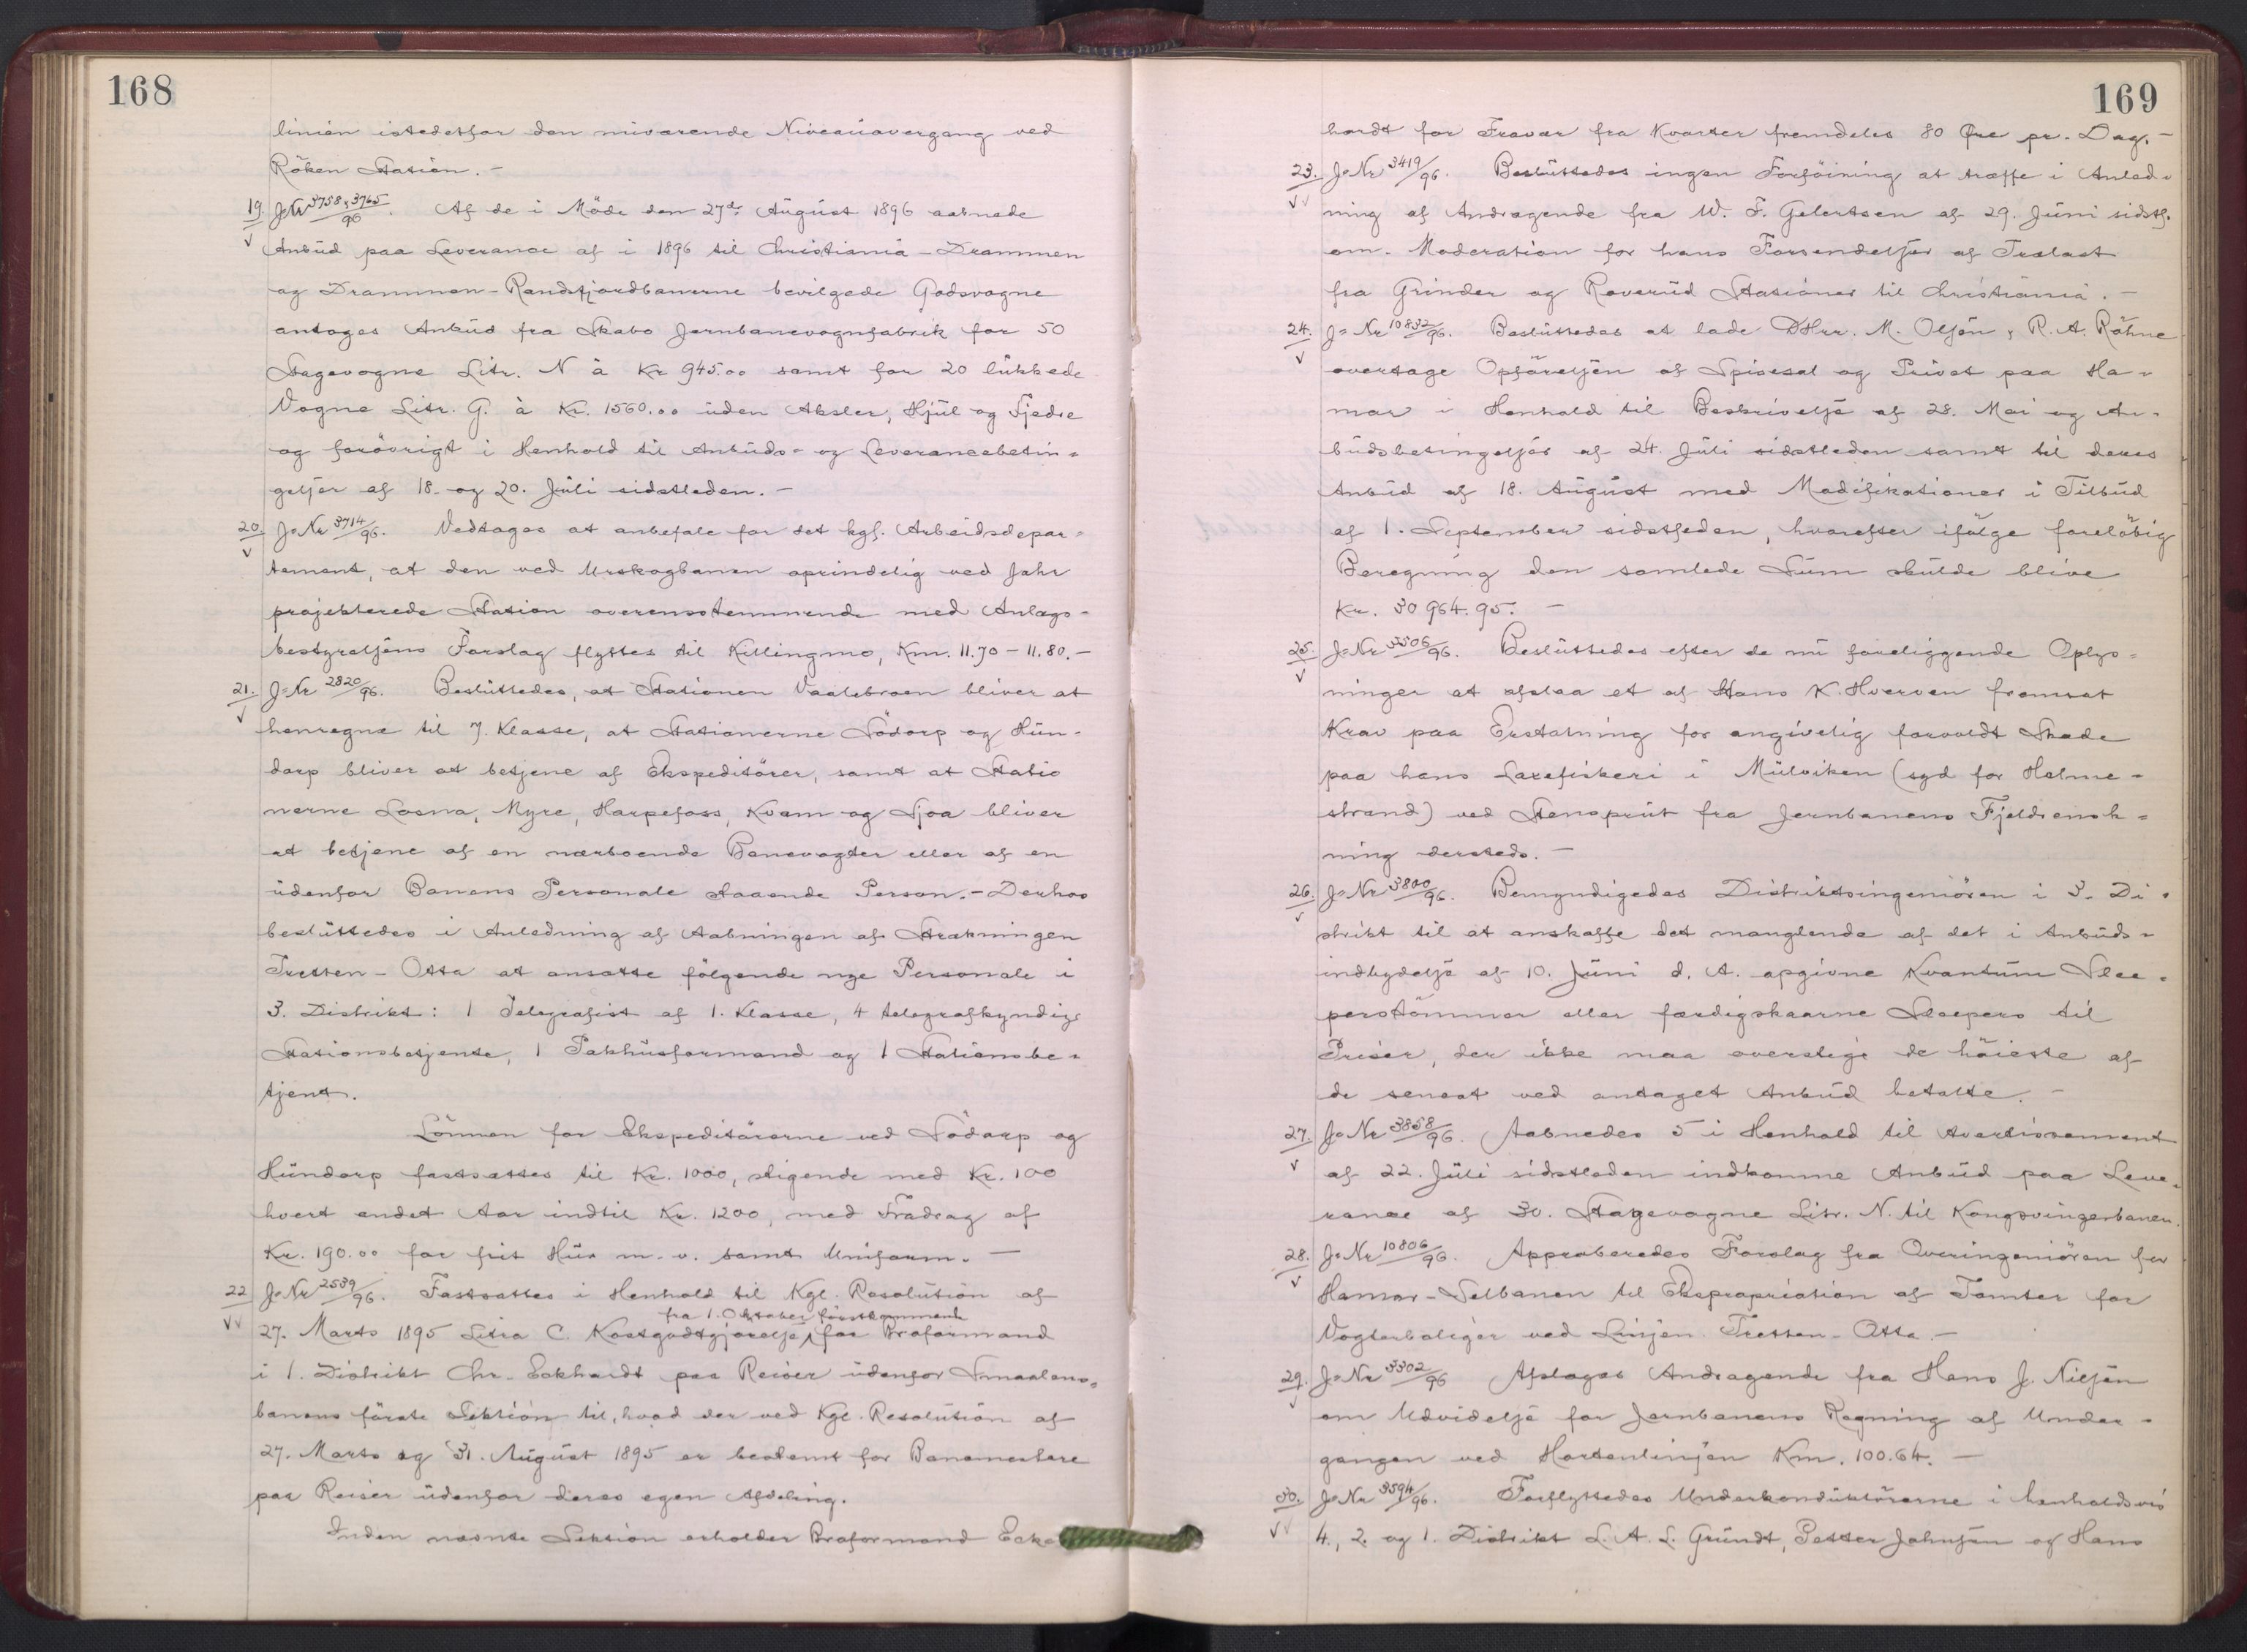 168
linien istedetfor den nuværende Niveauovergang ved
Röken Station. -
19. J=Nr 3758, 3765/96. Af de i Möde den 27de August 1896 aabnede
Anbud paa Leverance af i 1896 til Christiania-Drammen
og Drammen-Randsfjordbanerne bevilgede Godsvogne
antoges Anbud fra Skabo Jernbanevognfabrik for 50
Stagevogne Litr. N à Kr 945.00 samt for 20 lukkede
Vogne Litr. G. à Kr. 1560.00 uden Aksler, Hjul og Fjedre
og forövrigt i Henhold til Anbuds- og Leverancebetin=
gelser af 18. og 20. Juli sidstleden. -
20. J=Nr 3714/96. Vedtoges at anbefale for det kgl. Arbeidsdepar=
tement, at den ved Urskogbanen oprindelig ved Jahr
projekterede Station overensstemmende med Anlægs-
bestyrelsens Forslag flyttes til Killingmo, Km. 11.70 - 11.80. -
21. J=Nr 2820/96. Besluttedes, at Stationen Vaalebroen bliver at
henregne til 7. Klasse, at Stationerne Södorp og Hun-
dorp bliver at betjene af Ekspeditörer, samt at Statio
nerne Losna, Myre, Harpefoss, Kvam og Sjoa bliver
at betjene af en nærboende Banevogter eller af en
udenfor Banens Personale staaende Person. - Derhos
besluttedes i Anledning af Aabningen af Strækningen
Tretten-Otta at ansætte fölgende nye Personale i
3. Distrikt: 1 Telegrafist af 1. Klasse, 4 telegrafkyndige
Stationsbetjente, 1 Pakhusformand og 1 Stationsbe=
tjent.
Lönnen for Ekspeditörerne ved Södorp og
Hundorp fastsattes til Kr. 1000, stigende med Kr. 100
hvert andet Aar indtil Kr. 1200, med Fradrag af
Kr. 190.00 for frit Hus m. v. samt Uniform. -
22 J=Nr 2589/96. Fastsattes i Henhold til Kgl. Resolution af
fra 1. Oktober förstkommende
27. Marts 1895 Litra C. Kostgodtgjörelse for Broformand
i 1. Distrikt Chr. Eckhardt paa Reiser udenfor Smaalens=
banens förste Sektion til, hvad der ved Kgl. Resolution af
27. Marts og 31. August 1895 er bestemt for Banemestere
paa Reiser udenfor deres egen Afdeling.
Inden nævnte Sektion erholder Broformand Eck=
169
hardt for Fravær fra Kvarter fremdeles 80 Øre pr. Dag. -
23. J=Nr 3419/96. Besluttedes ingen Forföining at træffe i Anled=
ning af Andragende fra W. F. Gelertsen af 29. Juni sidstl.
om Moderation for hans Forsendelser af Trælast
fra Grinder og Roverud Stationer til Christiania. -
24. J=Nr 10832/96. Besluttedes at lade DHrr. M. Olsen & R. A. Röhne
overtage Opförelsen af Spisesal og Privet paa Ha=
mar i Henhold til Beskrivelse af 28. Mai og An=
budsbetingelser af 24. Juli sidstleden samt til deres
Anbud af 18. August med Modifikationer i Tilbud
af 1. September sidstleden, hvorefter ifölge forelöbig
Beregning den samlede Sum skulde blive
Kr. 30964.95. -
25. J=Nr 3506/96. Besluttedes efter de nu foreliggende Oplys=
ninger at afslaa et af Hans K. Hverven fremsat
Krav paa Erstatning for angivelig forvoldt Skade
paa hans Laxefiskeri i Mulviken (syd for Holme=
strand) ved Stensprut fra Jernbanens Fjeldrensk=
ning dersteds. -
26. J=Nr 3800/96. Bemyndigedes Distriktsingeniören i 3. Di=
strikt til at anskaffe det manglende af det i Anbuds=
indbydelse af 10. Juni d. A. opgivne Kvantum Slee=
perstömmer eller færdigskaarne Sleepers til
Priser, der ikke maa overstige de höieste af
de senest ved antaget Anbud betalte. -
27. J=Nr 3858/96. Aabnedes 5 i Henhold til Avertissement
af 22. Juli sidstleden indkomne Anbud paa Leve=
rance af 30. Stagevogne Litr. N. til Kongsvingerbanen.
28. J=Nr 10806/96. Approberedes Forslag fra Overingeniören for
Hamar-Selbanen til Ekspropriation af Tomter for
Vogterboliger ved Linjen Tretten-Otta. -
29. J=Nr 3302/96 Afsloges Andragende fra Hans J. Nilsen
om Udvidelse for Jernbanens Regning af Under=
gangen ved Hortenlinjen Km. 100.64. -
30. J=Nr 3594/96. Forflyttedes Underkonduktörerne i henholdsvis
4., 2. og 1. Distrikt L. A. L. Grundt, Petter Johnsen og Hans